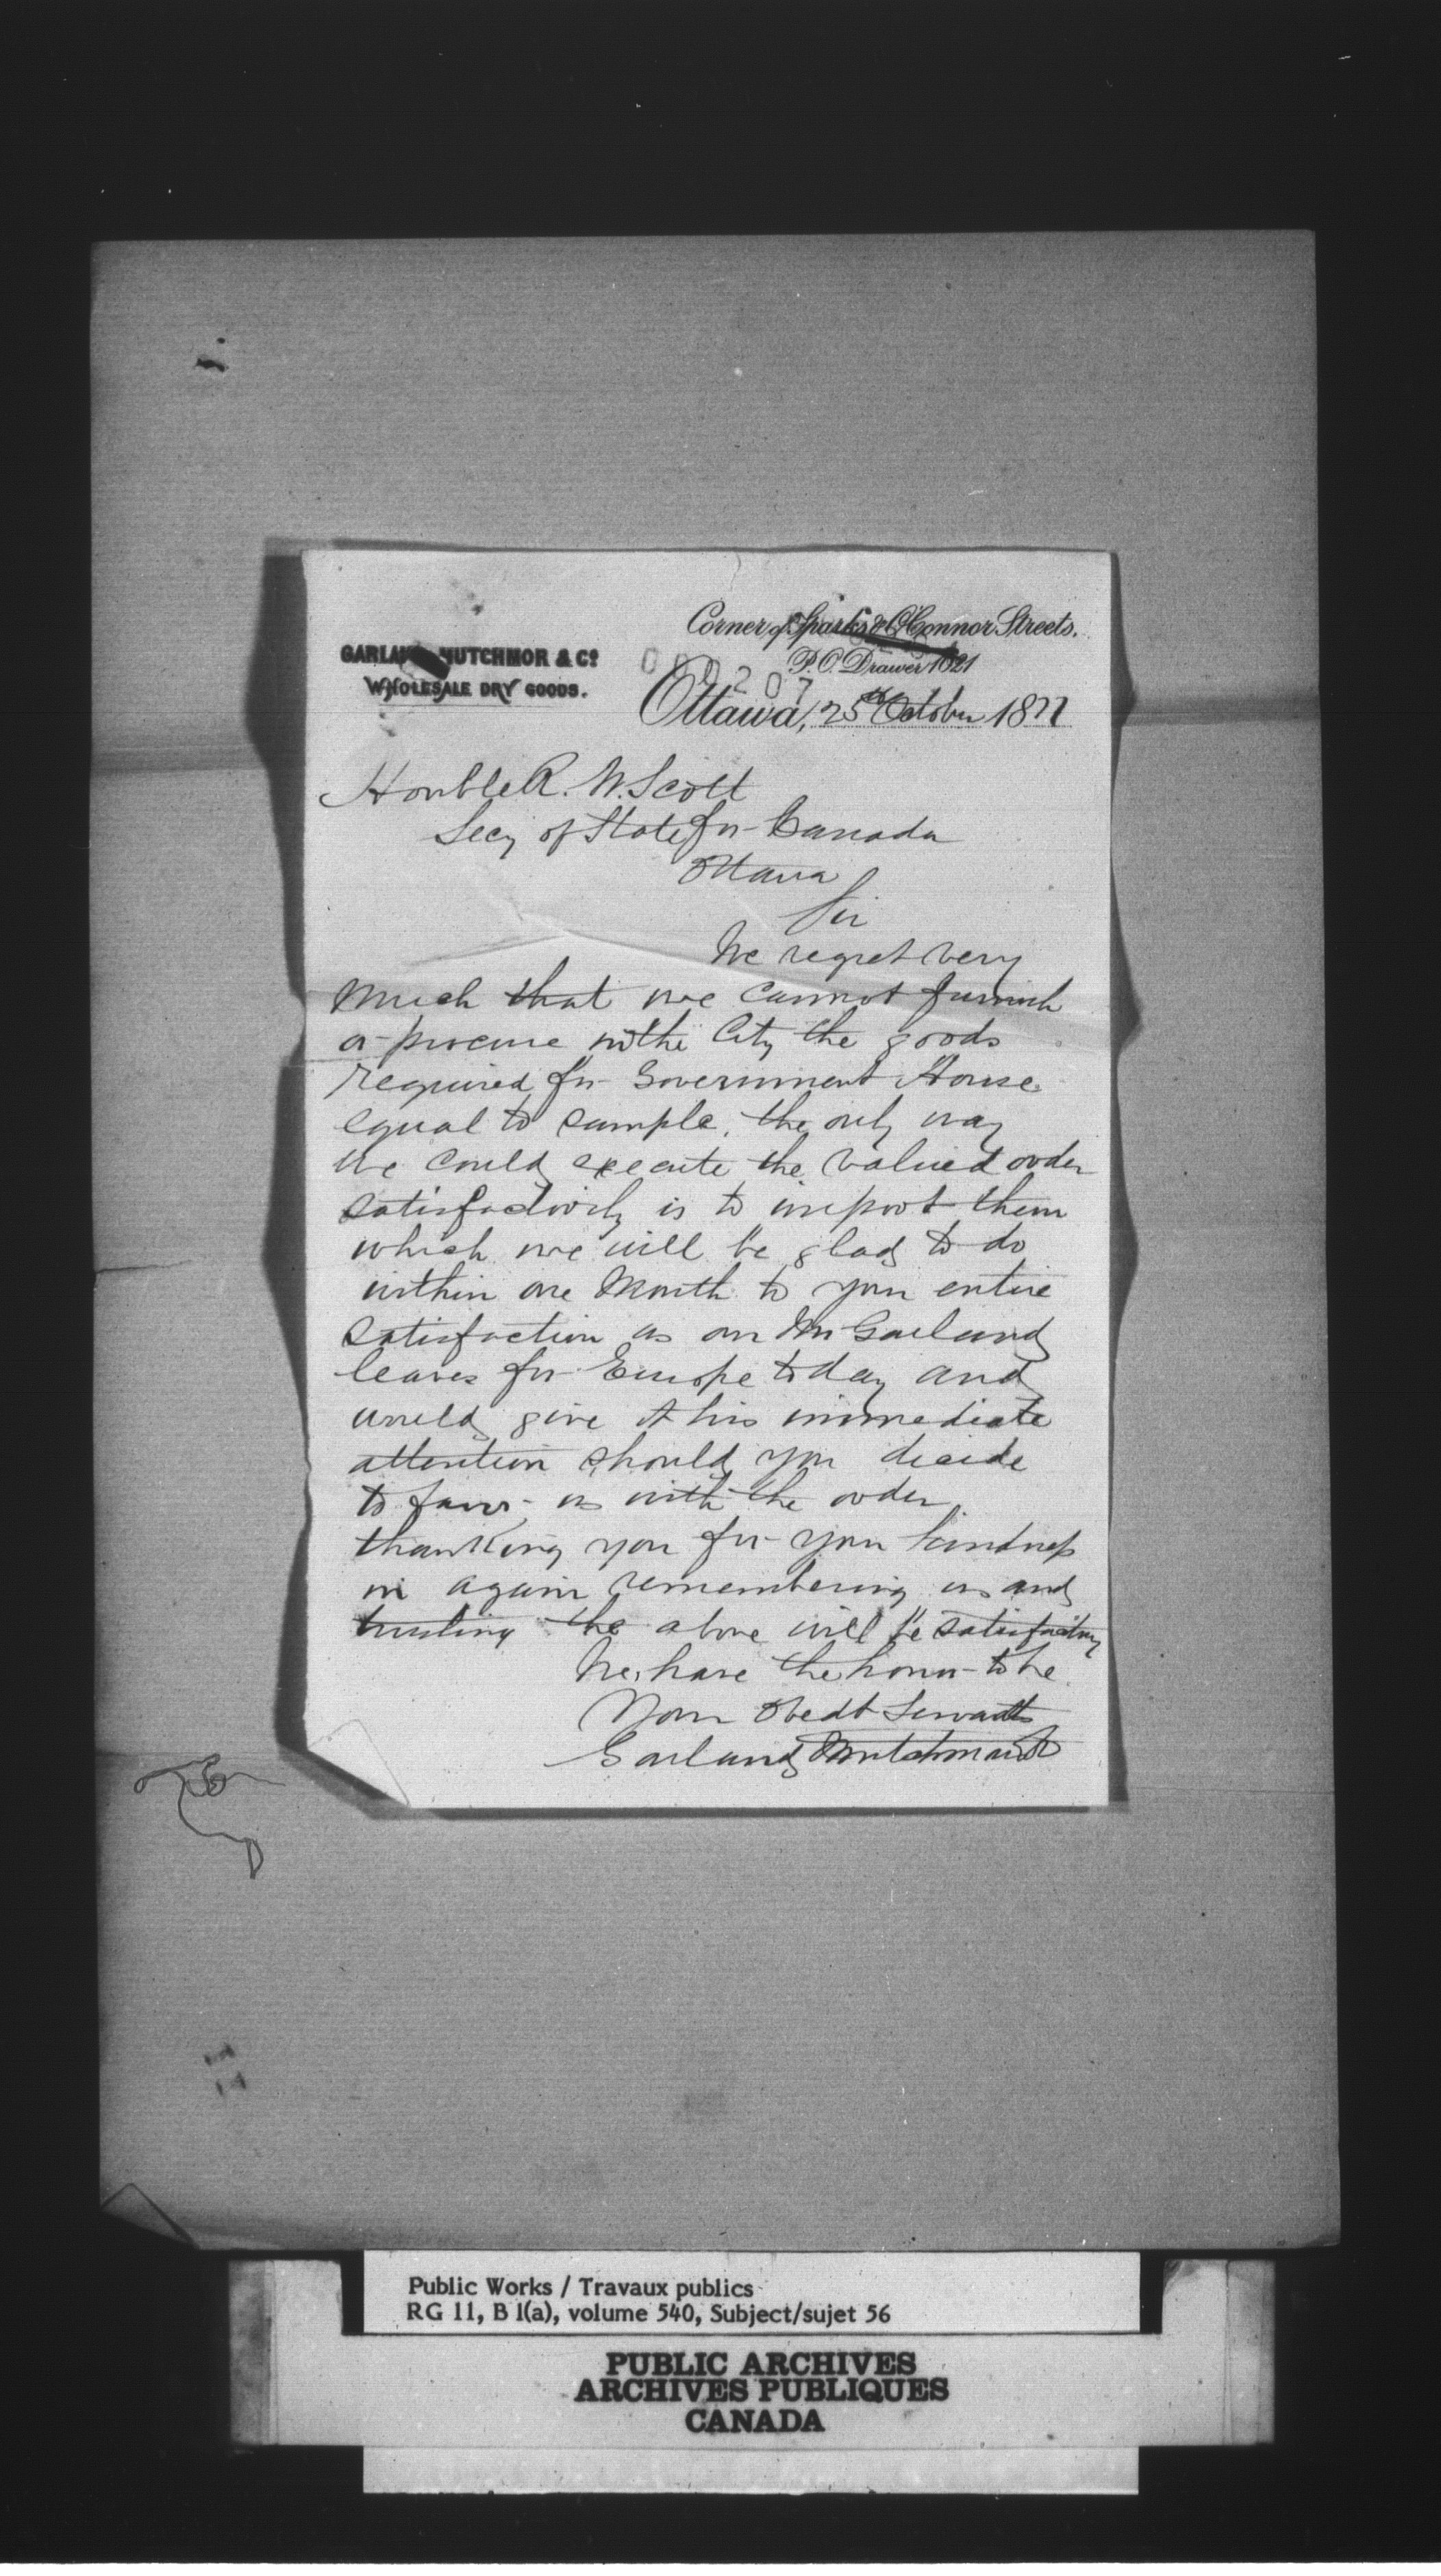 Corner of Sparks & O'Connor Streets.
GARLAND MUTCHMOR & Co
P.O. Drawer 1021
WHOLESALE DRY GOODS.
000207
Ottawa, 25th October 1877
Honble R. W. Scott
Secy of State for Canada
Ottawa
Sir
We regret very
much that we cannot furnish
or procure in the City the goods
required for Government House
equal to sample, the only way
we could execute the valued order
satisfactorily is to import them
which we will be glad to do
within one month to your entire
satisfaction as our Mr Garland
leaves for Europe to day and
would give it his immediate
attention should you decide
to favor us with the order
thanking you for your kindness
in again remembering us and
trusting the above will be satisfactory
We have the honor to be
Your Obedt Servants
Garland Mutchmor & Co
Public Works / Travaux publics
RG 11, B 1(a), volume 540, Subject/sujet 56
PUBLIC ARCHIVES
ARCHIVES PUBLIQUES
CANADA